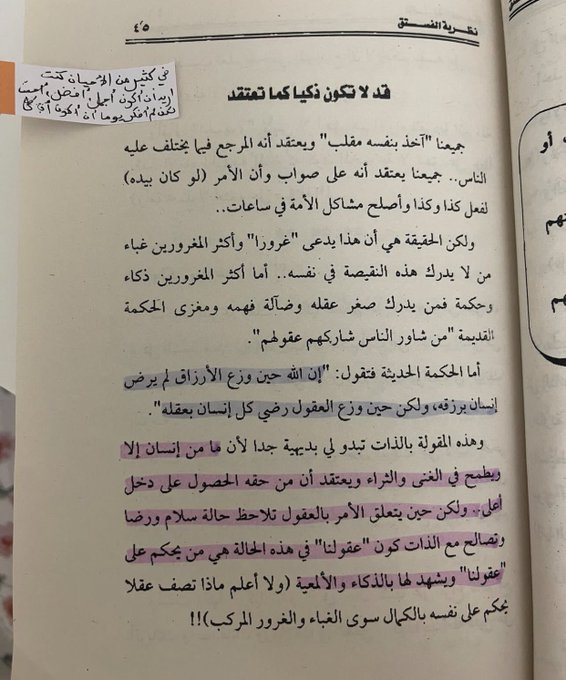 نظرية الفستق
٤٥
في كثير من الأحيان كنت
اريد ان أكون أجمل، أفضل، أحسن
لكن لم أفكر يوما أن أكون أذكى
قد لا تكون ذكيا كما تعتقد
جميعنا "آخذ بنفسه مقلب" ويعتقد أنه المرجع فيما يختلف عليه
الناس.. جميعنا يعتقد أنه على صواب وأن الأمر (لو كان بيده)
لفعل كذا وكذا وأصلح مشاكل الأمة في ساعات..
ولكن الحقيقة هي أن هذا يدعى "غرورا" وأكثر المغرورين غباء
من لا يدرك هذه النقيصة في نفسه.. أما أكثر المغرورين ذكاء
وحكمة فمن يدرك صغر عقله وضآلة فهمه ومغزى الحكمة
القديمة "من شاور الناس شاركهم عقولهم".
أما الحكمة الحديثة فتقول: "إن الله حين وزع الأرزاق لم يرض
إنسان برزقه، ولكن حين وزع العقول رضي كل إنسان بعقله".
وهذه المقولة بالذات تبدو لي بديهية جدا لأن ما من إنسان إلا
ويطمح في الغنى والثراء ويعتقد أن من حقه الحصول على دخل
أعلى.. ولكن حين يتعلق الأمر بالعقول تلاحظ حالة سلام ورضا
وتصالح مع الذات كون "عقولنا" في هذه الحالة هي من يحكم على
"عقولنا" ويشهد لها بالذكاء والألمعية (ولا أعلم ماذا تصف عقلا
يحكم على نفسه بالكمال سوى الغباء والغرور المركب)!!
أو